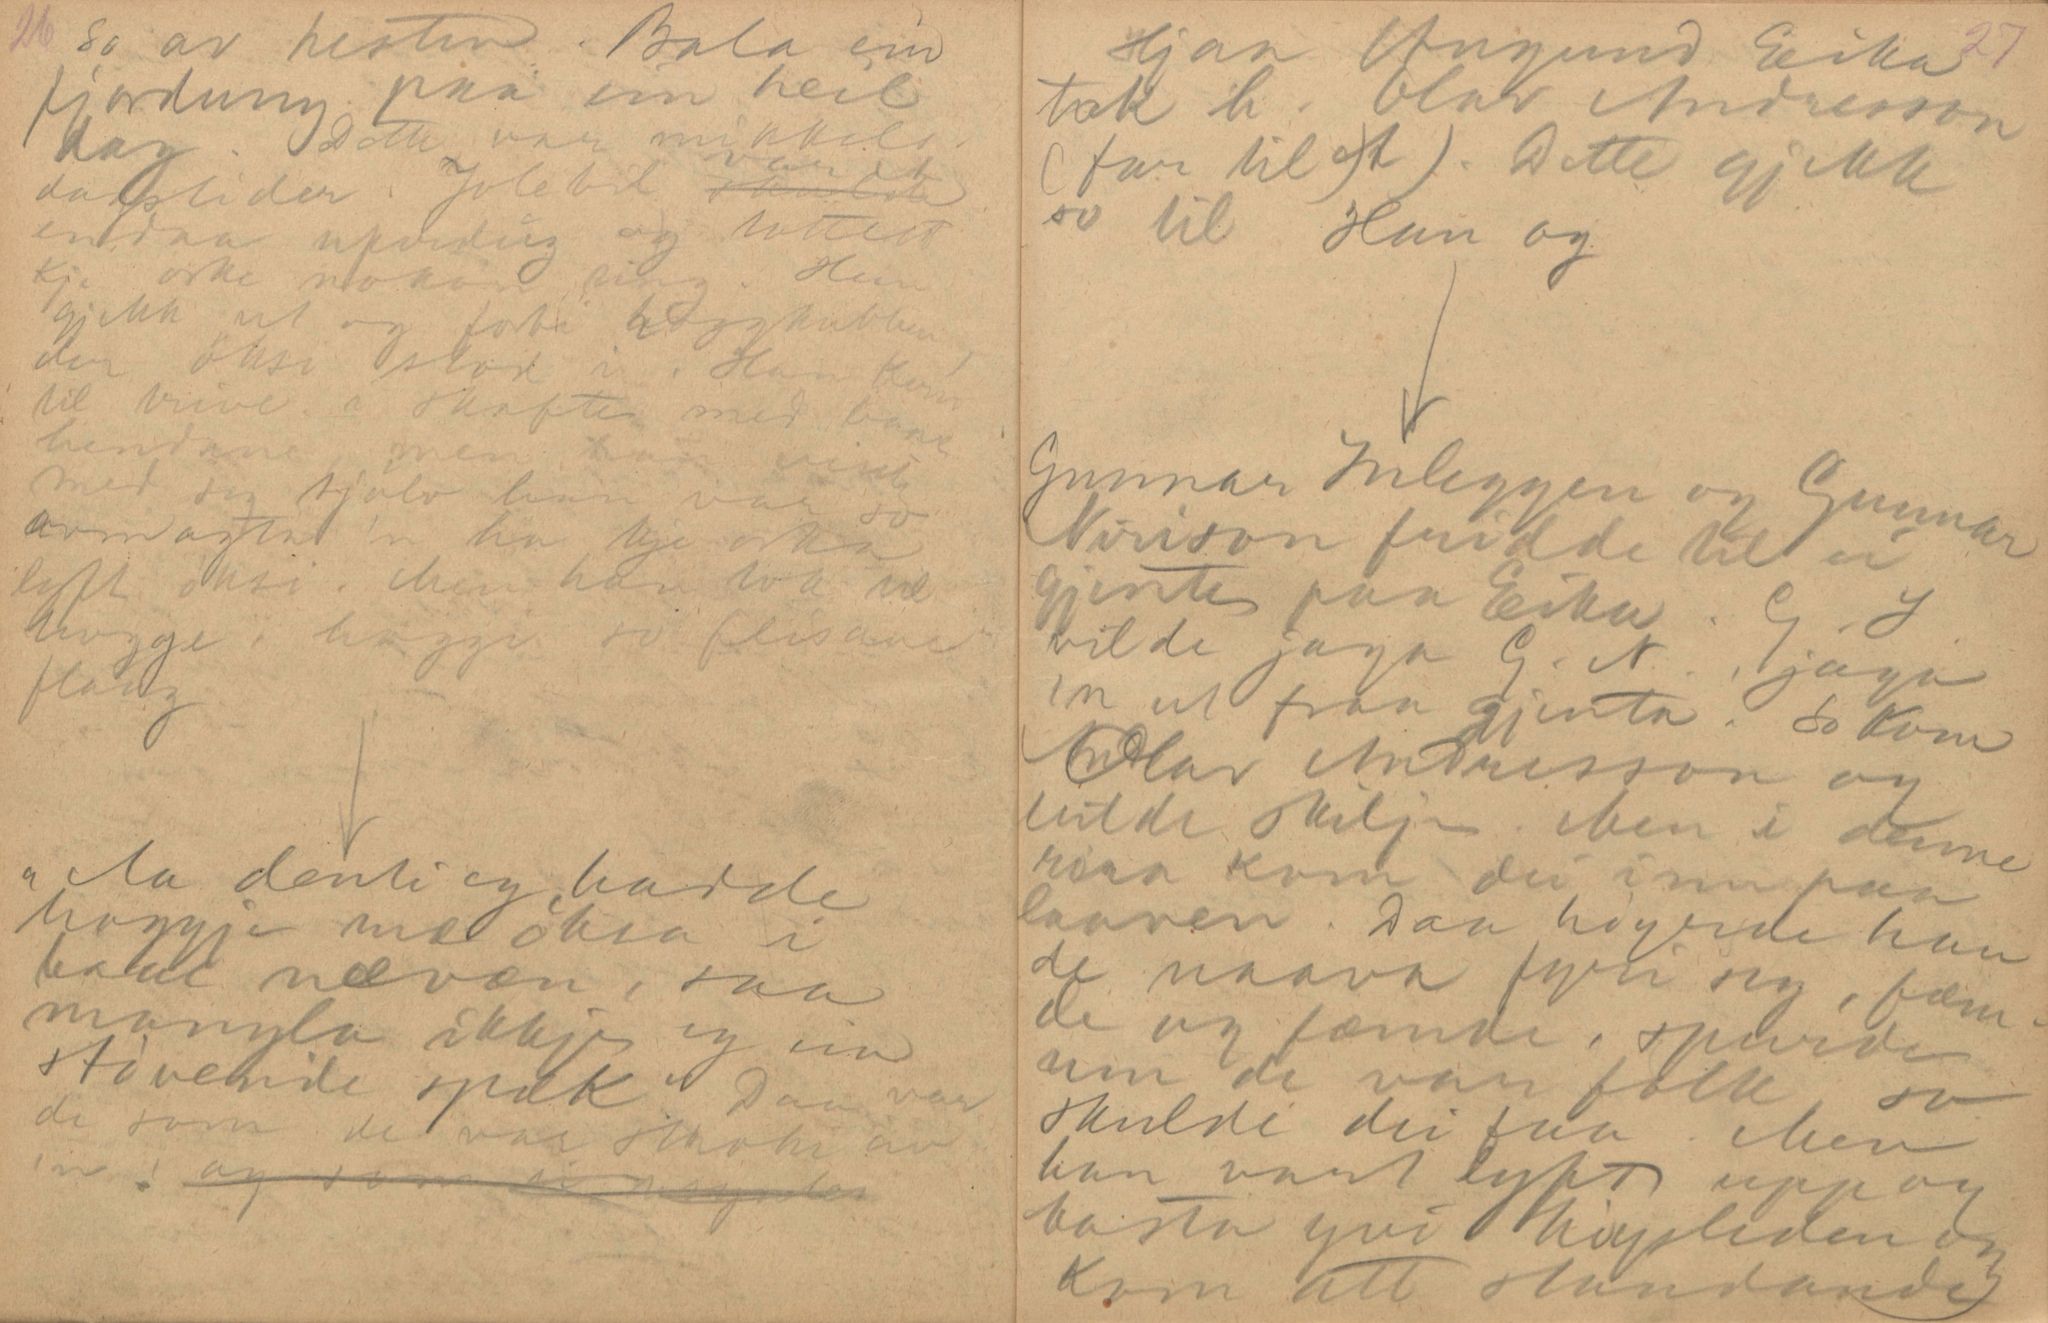 26
so av hesten. Bala ein
fjordung paa ein heil
dag. Dette var mikkels-
dagstider. Joletil var han
endaa upardug og tottest
kje orke nokon ting. Han
gjekk ut og forbi hoggkubben
der öksi stod i. Han kom
til trive i skafte med baae
hendane, men han visst
med seg sjölv han var so
armagta 'n ha kje orka
lyft öksi. Men han tok til
hogge, hoggi so flisane
flaug
"Aa denti eg hadde
hoggje mæ öksa i
baae nævæn, saa
mangla ikkje eg ein
stövende spæk." Daa var
de som de var stroki av
'n. og som
27
Hjaa Aagund Eika
tok h. Olav Andresson
(far til). Dette gjekk
so til Han og
Gunnar Inleggen og Gunnar
Nirison fridde til ei
gjente paa Eika. G. I.
vilde jaga G. N., jaga
'n ut fraa gjenta. So kom
Olav Andresson og
vilde skilje. Men i denne
riaa kom dei inn paa
laaven. Daa höyrde han
de naava fyri seg, fæm-
de og fæmde, spurde
um de var folk, so
skulde dei faa. Men
han vart lyft upp og
kasta yvi höysleden og
kom att standande